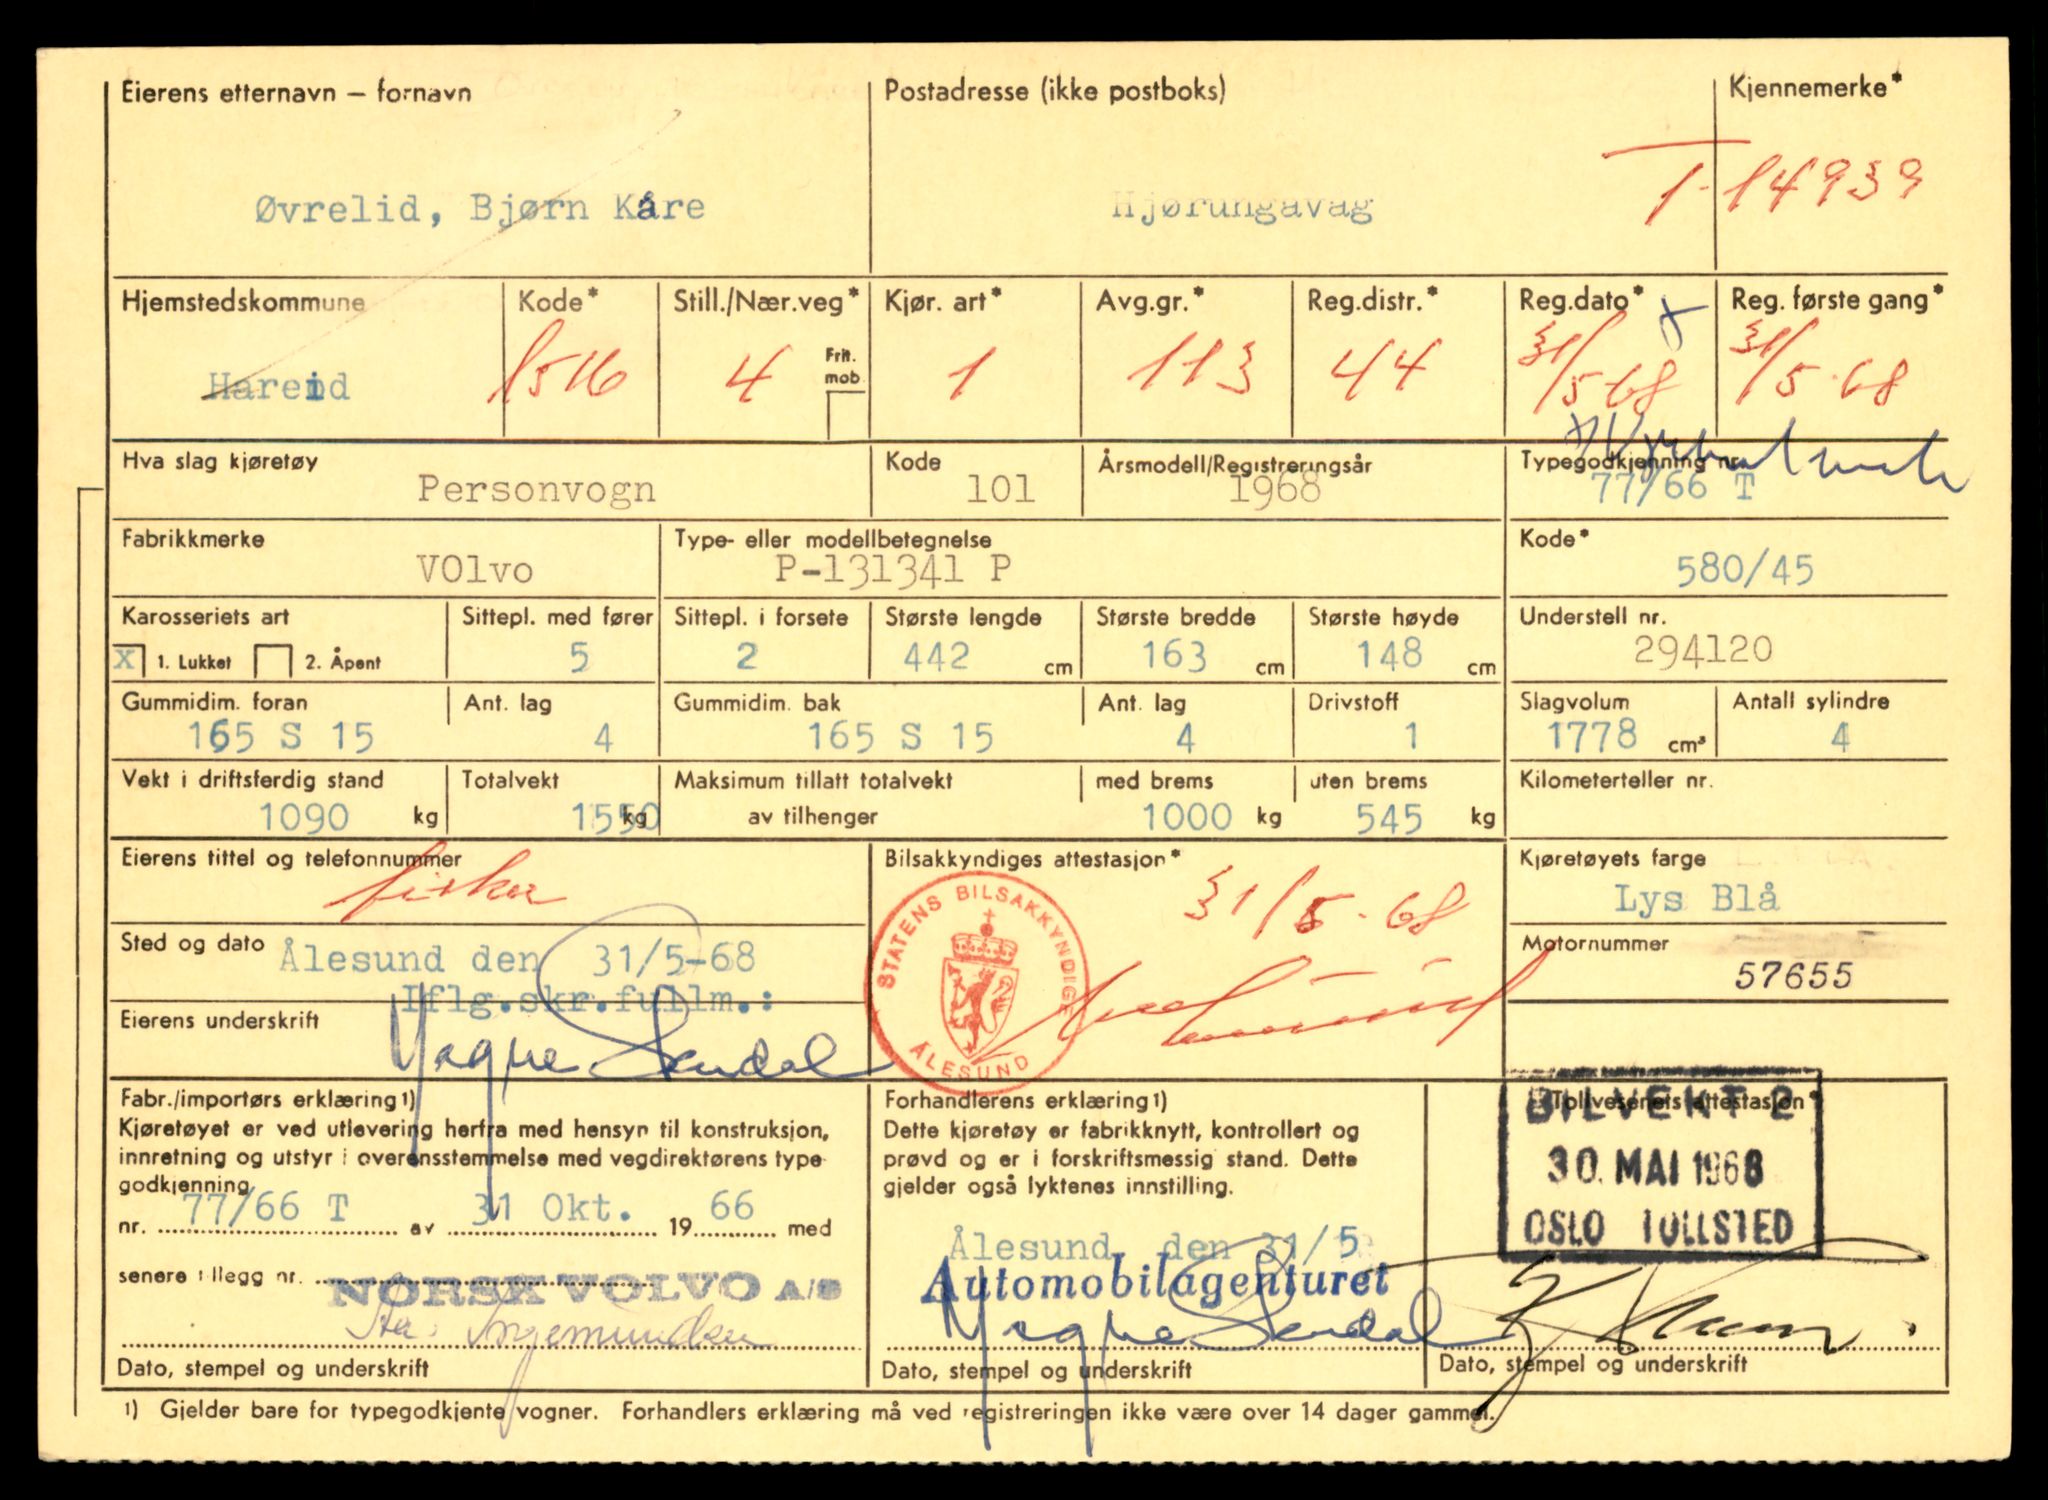 Eierens etternavn – fornavn Postadresse (ikke postboks) Kjennemerke*
Øvrelid, Bjørn Kåre Hjørungavåg T-14939
Hjemstedskommune Kode* Still./Nær.veg* Kjør. art* Avg.gr.* Reg.distr.* Reg.dato* Reg. første gang*
Hareid 1516 4 Frit. mob. 1 113 44 31/5-68 31/5-68
Hva slag kjøretøy Kode Årsmodell/Registreringsår Typegodkjenning nr.
Personvogn 101 1968 77/66 T
Fabrikkmerke Type- eller modellbetegnelse Kode*
VOlvo P-131341 P 580/45
Karosseriets art Sittepl. med fører Sittepl. i forsete Største lengde Største bredde Største høyde Understell nr.
X 1. Lukket 2. Åpent 5 2 442 cm 163 cm 148 cm 294120
Gummidim. foran Ant. lag Gummidim. bak Ant. lag Drivstoff Slagvolum Antall sylindre
165 S 15 4 165 S 15 4 1 1778 cm³ 4
Vekt i driftsferdig stand Totalvekt Maksimum tillatt totalvekt med brems uten brems Kilometerteller nr.
1090 kg 1550 kg av tilhenger 1000 kg 545 kg
Eierens tittel og telefonnummer Bilsakkyndiges attestasjon* Kjøretøyets farge
fisker 31/5-68 Lys Blå
STATENS BILSAKKYNDIGE ÅLESUND
Sted og dato Ålesund den 31/5-68 Motornummer
57655
Iflg.skr.fullm.:
Eierens underskrift
Magne Sandal
Fabr./importørs erklæring 1) Forhandlerens erklæring 1) Tollvesenets attestasjon*
Kjøretøyet er ved utlevering herfra med hensyn til konstruksjon, Dette kjøretøy er fabrikknytt, kontrollert og BILVEKT 2
innretning og utstyr i overensstemmelse med vegdirektørens type- prøvd og er i forskriftsmessig stand. Dette 30. MAI 1968
godkjenning gjelder også lyktenes innstilling. OSLO TOLLSTED
nr. 77/66 T av 31 Okt. 19 66 med
Ålesund den 31/5
senere tillegg nr. NORSK VOLVO A/S Automobilagenturet
Ingemundsen Magne Sandal
Dato, stempel og underskrift Dato, stempel og underskrift Dato, stempel og underskrift
1) Gjelder bare for typegodkjente vogner. Forhandlers erklæring må ved registreringen ikke være over 14 dager gammel.